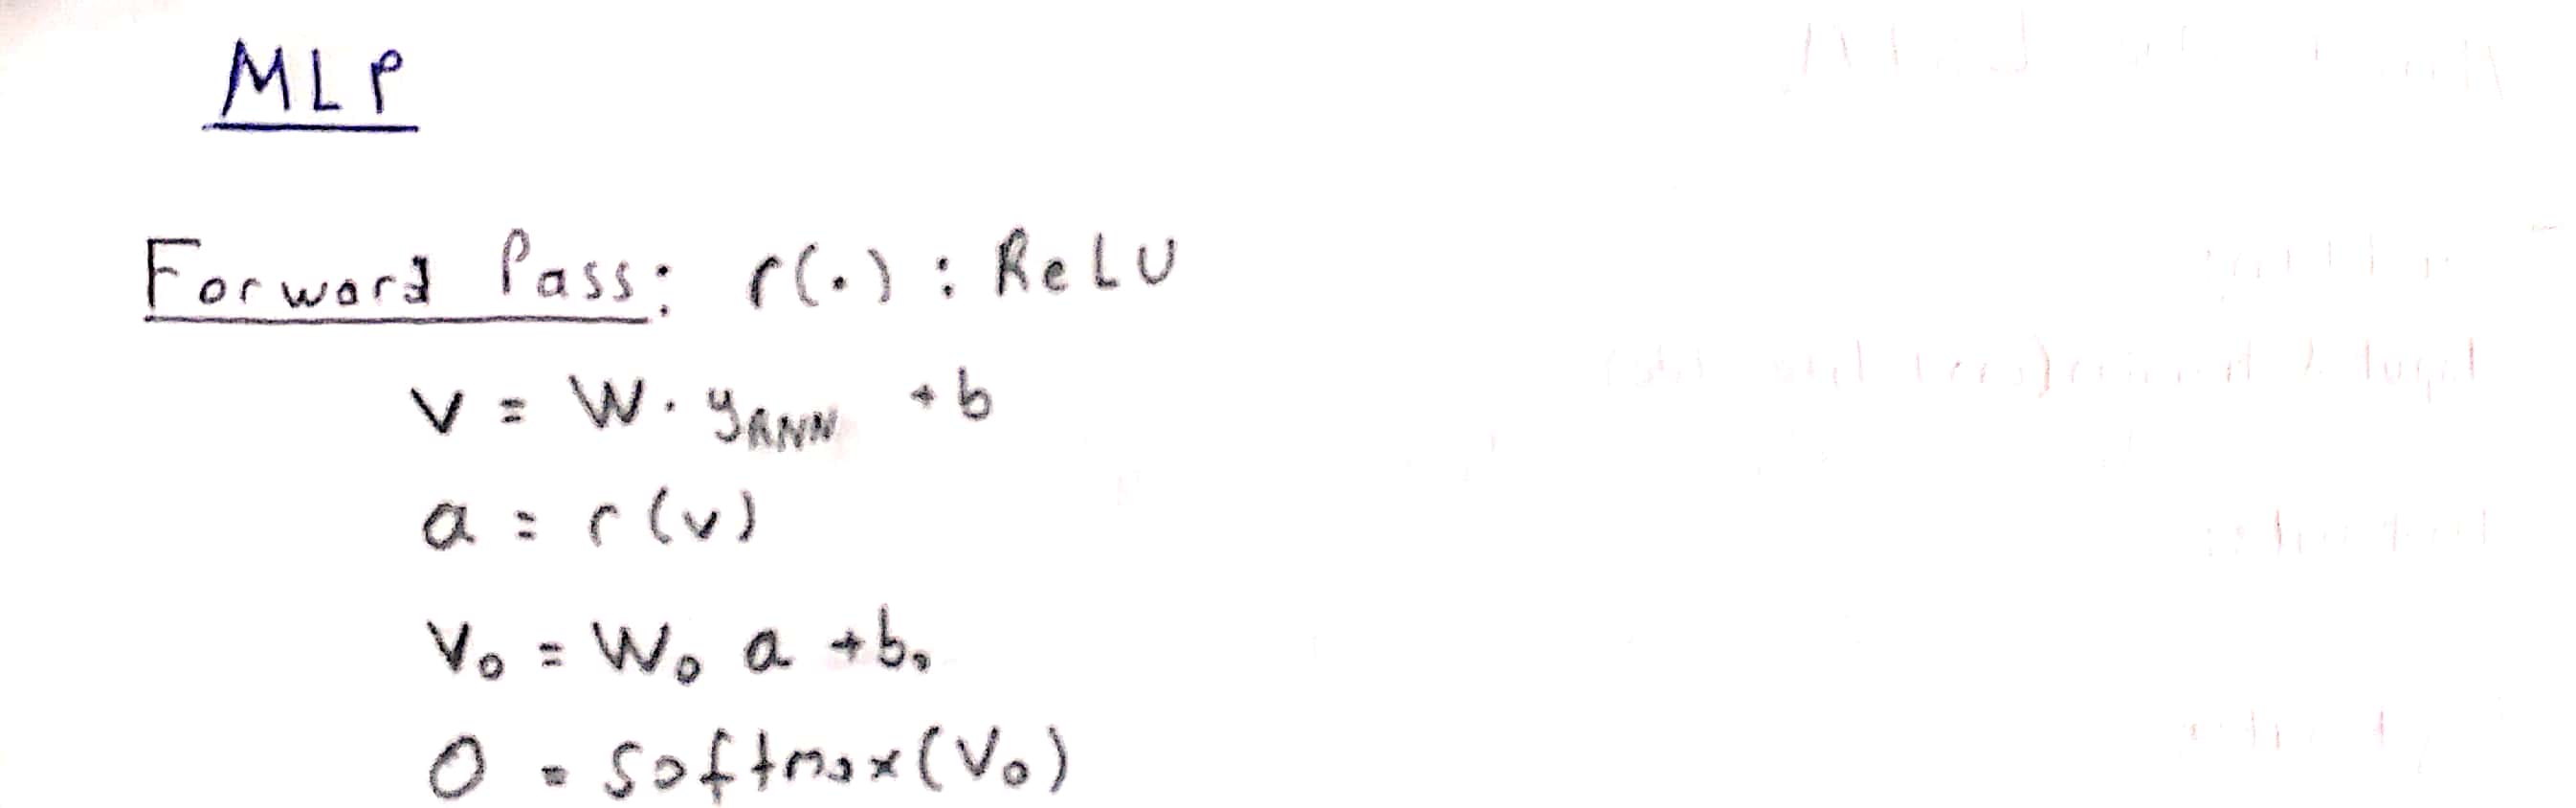 MLP
Forward Pass: r(.) : ReLU
v = W. yRNN + b
a = r(v)
Vo = Wo a + bo
O = Softmax(Vo)